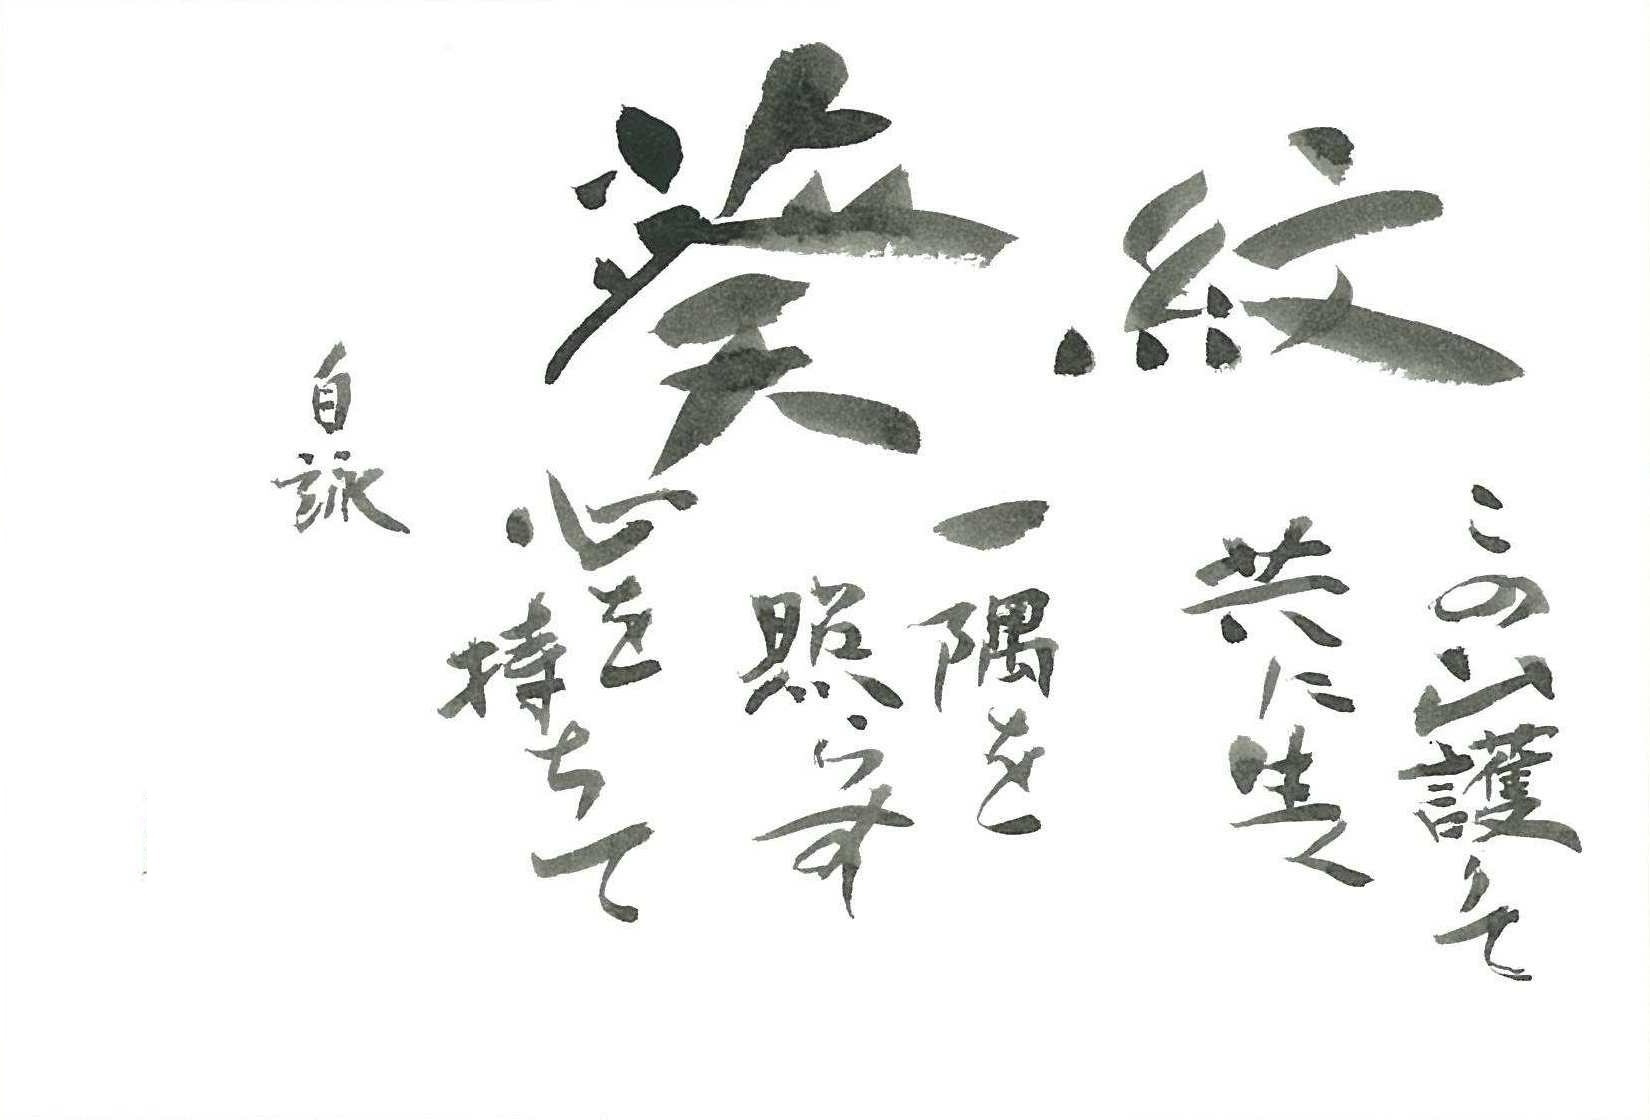 紋葵
この山護りて
共に生く
一隅を
照らす
心を
持ちて
自詠